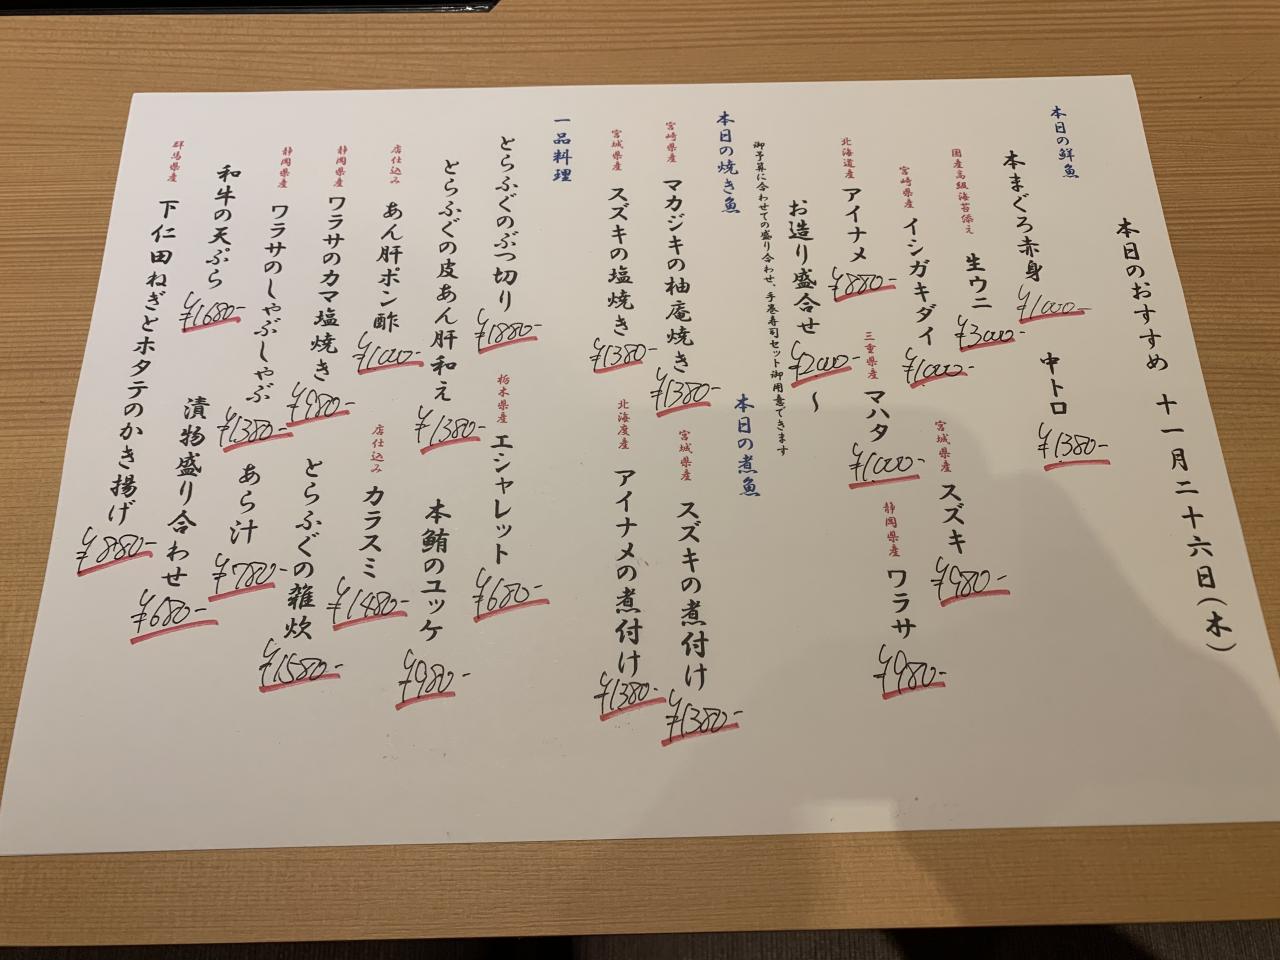 本日のおすすめ 十一月二十六日(木)
本日の鮮魚
本まぐろ赤身 ¥1000- 中トロ ¥1380-
国産高級海苔添え 生ウニ ¥3000- 宮城県産 スズキ ¥980-
宮崎県産 イシガキダイ ¥1000- 静岡県産 ワラサ ¥980-
北海道産 アイナメ ¥880- 三重県産 マハタ ¥1000-
お造り盛合せ ¥2000- 〜
御予算に合わせての盛り合わせ、手巻寿司セット御用意できます
本日の焼き魚 本日の煮魚
宮崎県産 マカジキの柚庵焼き ¥1380- 宮城県産 スズキの煮付け ¥1380-
宮城県産 スズキの塩焼き ¥1380- 北海度産 アイナメの煮付け ¥1380-
一品料理
とらふぐのぶつ切り ¥1880- 栃木県産 エシャレット ¥680-
とらふぐの皮あん肝和え ¥1380- 本鮪のユッケ ¥980-
店仕込み あん肝ポン酢 ¥1000- 店仕込み カラスミ ¥1480-
静岡県産 ワラサのカマ塩焼き ¥980- とらふぐの雑炊 ¥1580-
静岡県産 ワラサのしゃぶしゃぶ ¥1380- あら汁 ¥780-
和牛の天ぷら ¥1680- 漬物盛り合わせ ¥680-
群馬県産 下仁田ねぎとホタテのかき揚げ ¥880-